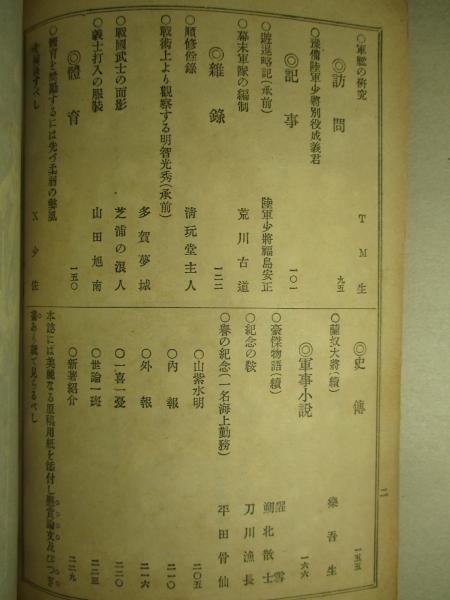 ○軍艦の研究 TM生
◎訪問 九五
○豫備陸軍少將別役成義君
◎記事 一〇一
○遊邏略記(承前) 陸軍少將福島安正
○幕末軍隊の編制 荒川古道
◎雜錄 一二二
○順修餘錄 清玩堂主人
○戰術上より觀察する明智光秀(承前) 多賀夢城
○戰國武士の面影 芝浦の浪人
○義士打入の服裝 山田旭南
◎體育 一五〇
X少佐
◎史傳 一五五
○蘭奴大將(續) 樂吾生
◎軍事小說 一六六
○豪傑物語(續) 朔北散士
○紀念の鞍 刀川漁長
○譽の紀念(一名海上勤務) 平田骨仙
○山紫水明 二〇五
○內報 二一〇
○外報 二一六
○一喜一憂 二二〇
○世論一斑 二二三
○新著紹介 二二九
本誌には美麗なる原稿用紙を添付し懸賞論文及び
就て見らるべし
二